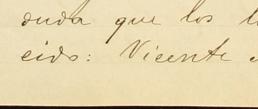 duda que los
cido: Vicente